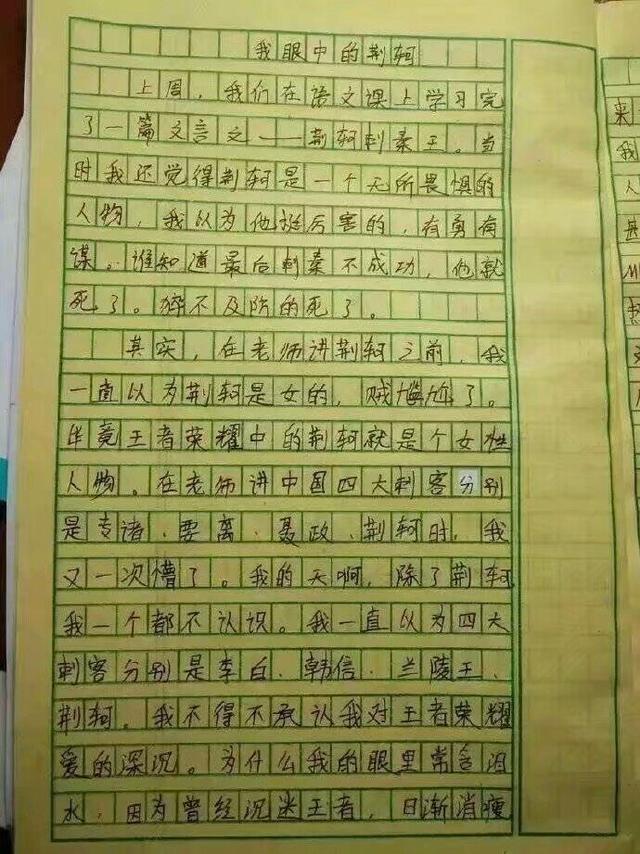 我眼中的荆轲
上周，我们在语文课上学习完
了一篇文言文——荆轲刺秦王。当
时我还觉得荆轲是一个无所畏惧的
人物，我以为他挺厉害的，有勇有
谋。谁知道最后刺秦不成功，他就
死了。猝不及防的死了。
其实，在老师讲荆轲之前，我
一直以为荆轲是女的，贼尴尬了。
毕竟王者荣耀中的荆轲就是个女性
人物。在老师讲中国四大刺客分别
是专诸、要离、聂政、荆轲时，我
又一次懵了。我的天啊，除了荆轲
我一个都不认识。我一直以为四大
刺客分别是李白、韩信、兰陵王、
荆轲。我不得不承认我对王者荣耀
爱的深沉。为什么我的眼里常含泪
水，因为曾经沉迷王者，日渐消瘦
来
我
人
甚